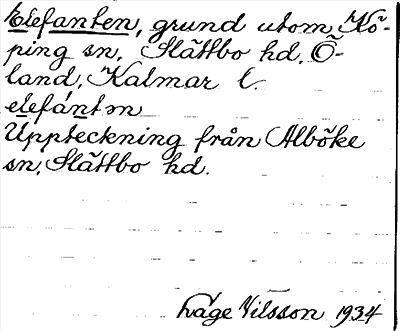 Elefanten, grund utom Kö-
ping sn, Slättbo hd, Ö-
land, Kalmar l.
elefántən
Uppteckning från Alböke
sn, Slättbo hd.
Låge Nilsson 1934